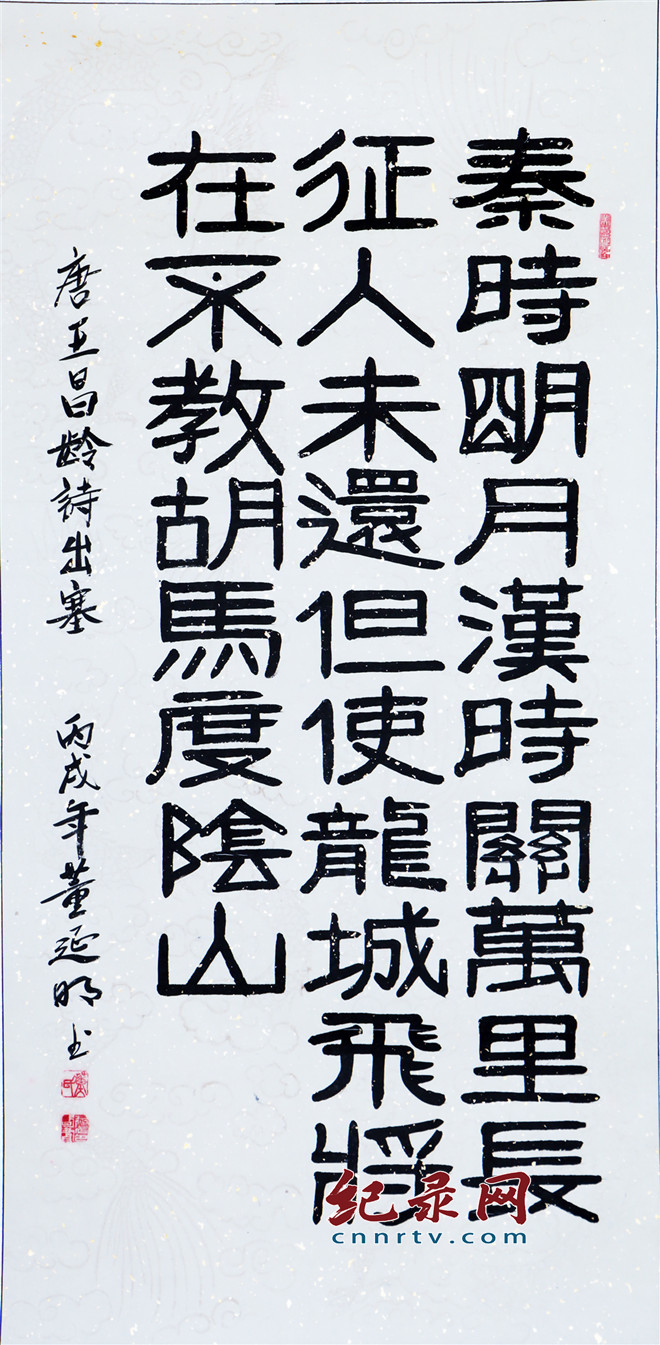 秦時明月漢時關萬里長
征人未還但使龍城飛將
在不教胡馬度陰山
唐王昌齡詩出塞 丙戌年董延明书
纪录网
cnnrtv.com